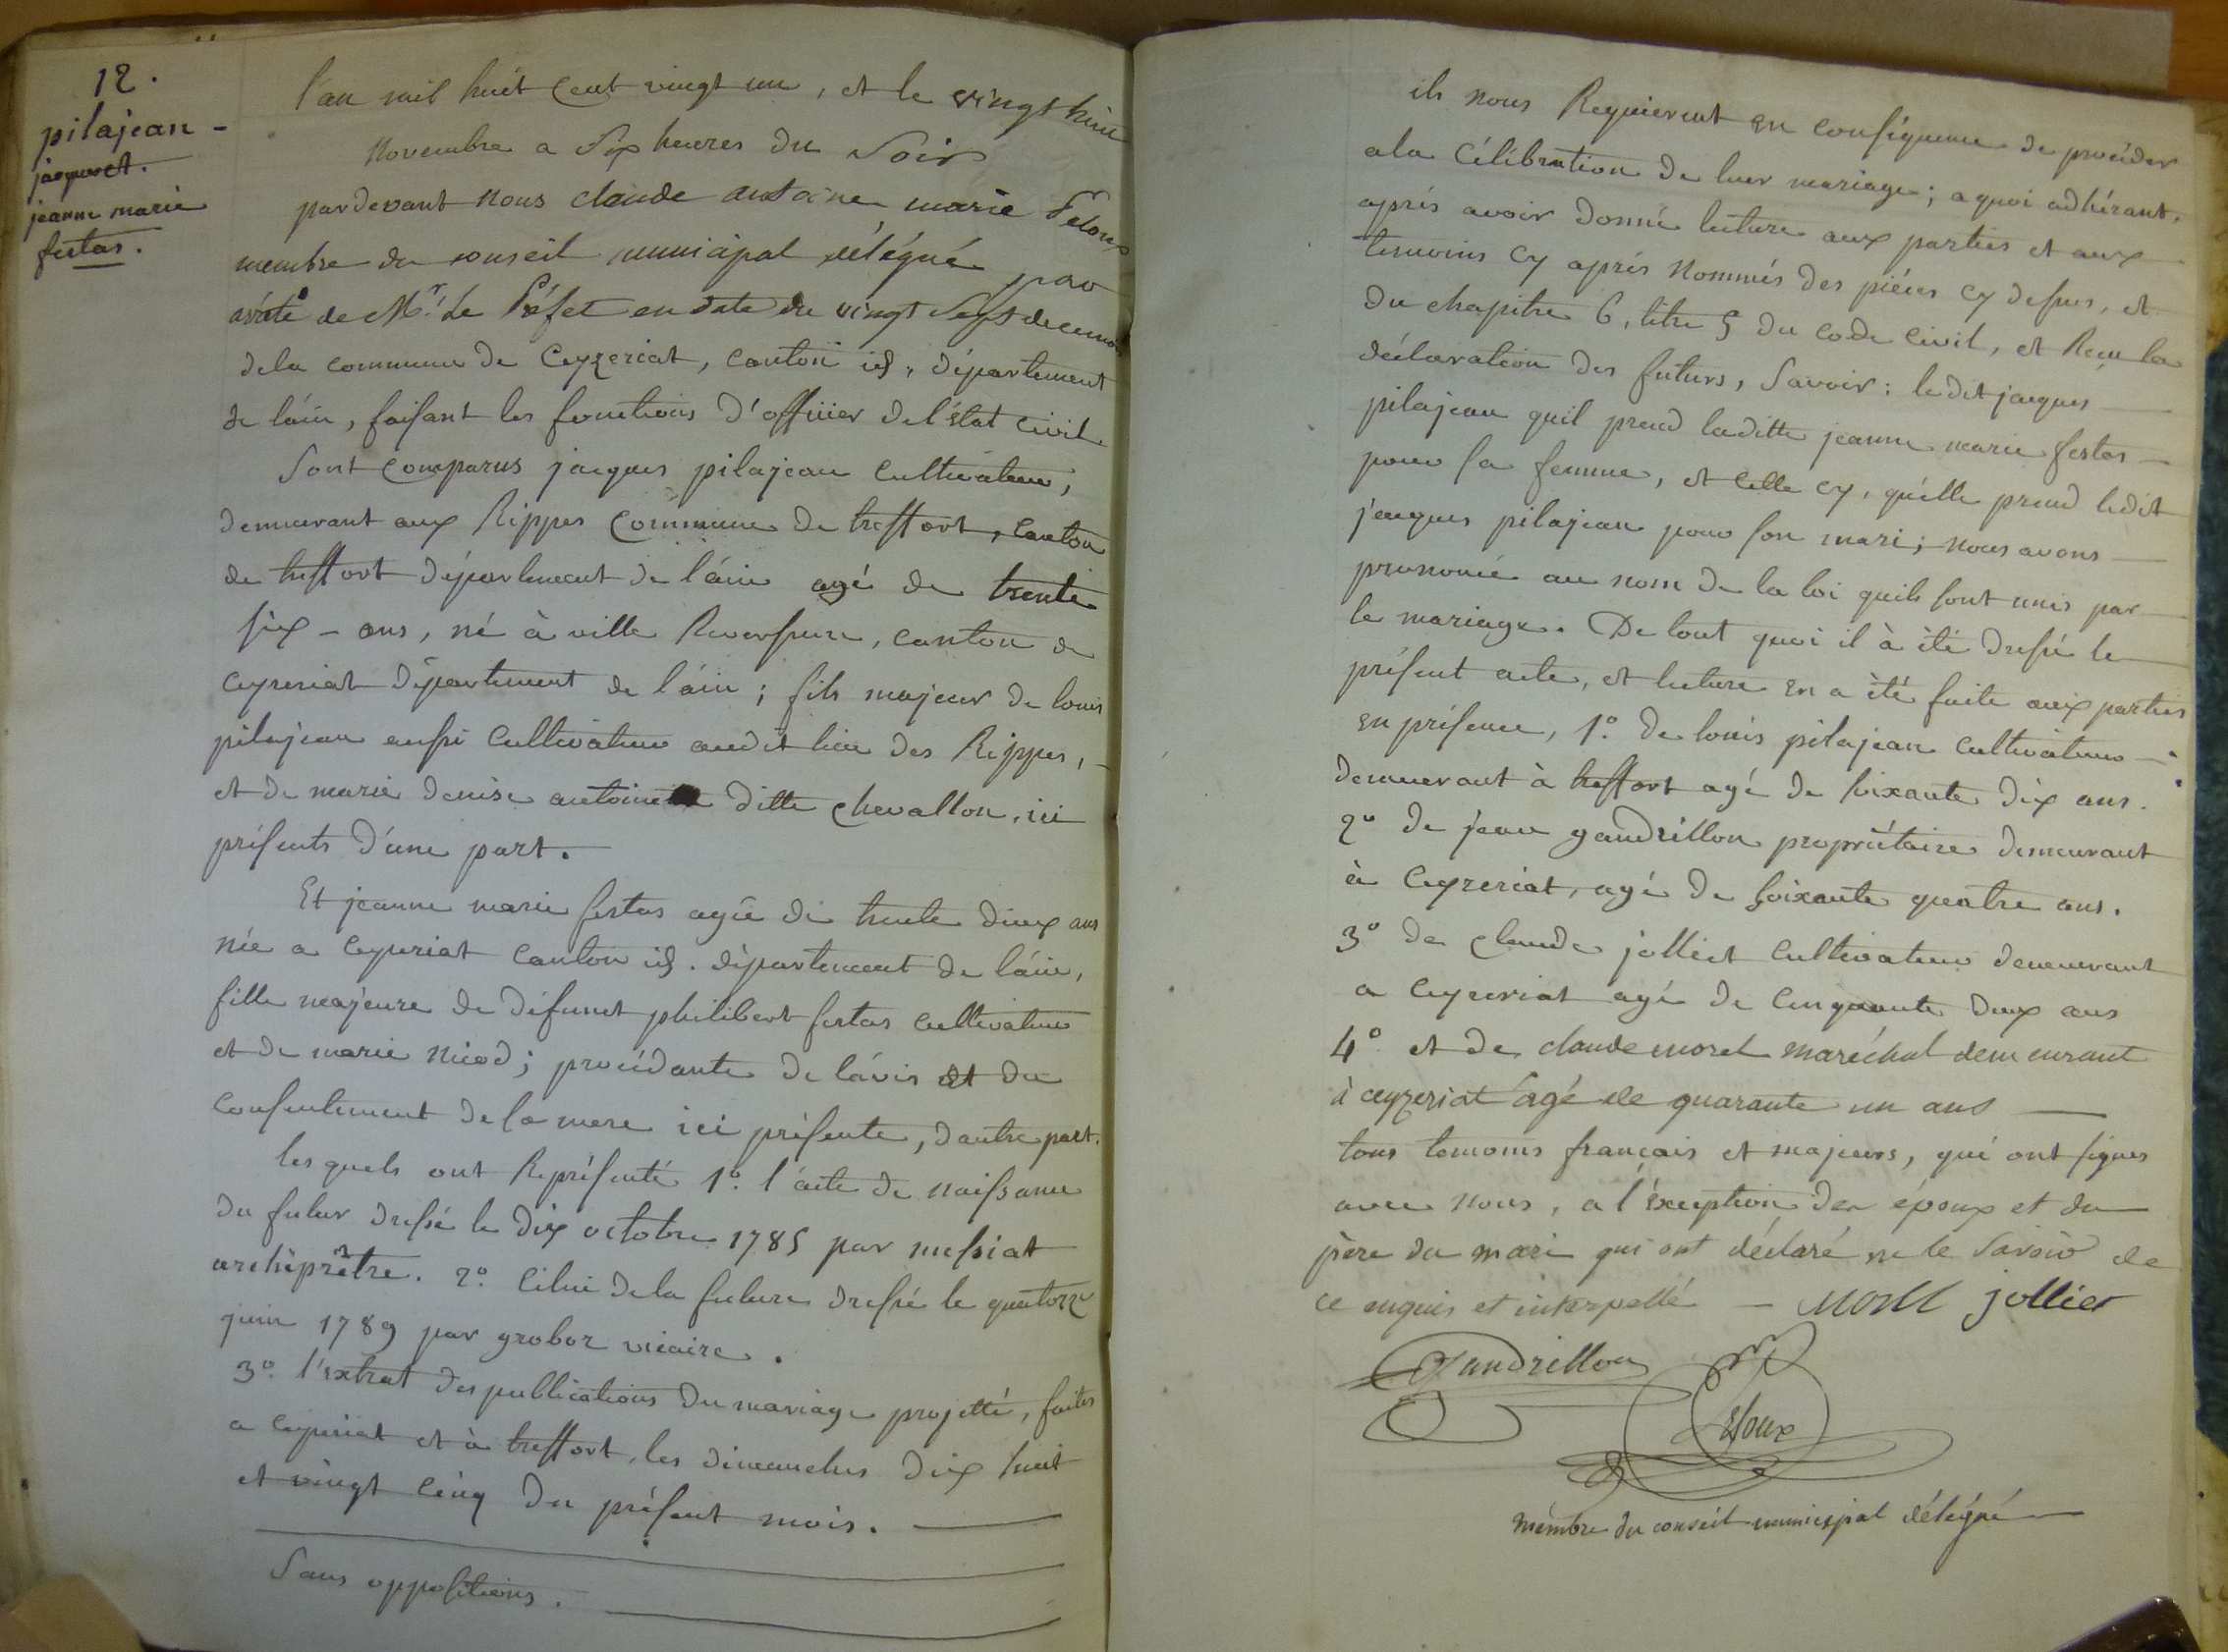 12.
pilajean -
jacques et.
jeanne marie
festas.
l'an mil huit cent vingt un, et le vingt huit
Novembre a Six heures du Soir
pardevant nous claude antoine marie
membre du conseil municipal délégué par
arété de Mr. Le Préfet en date du vingt Sept decemb
dela commune de Ceyzeriat, canton id, département
de láin, faisant les fonctions d'officier del'état civil
Sont comparus jacques pilajean cultivateur,
demeurant aux Rippes commune de treffort, canton
de treffort département de l'áin agé de trente
six - ans, né à ville Reversure, canton de
ceyzeriat département de l'áin; fils majeur de louis
pilajean aussi cultivateur audit lieu des Rippes,
et de marie denise antoinette ditte chevallon, ici
présents d'une part.
Et jeanne marie festas agée de trente deux ans
née a ceyzeriat canton id. département de láin,
fille majeure de défunct philibert festas cultivateur
et de marie niod; procédante de lávis et du
consentement de sa mere ici présente, dautre part.
les quels ont Représenté 1º. l'acte de naissance
du futur dressé le dix octobre 1785 par messiat
archiprêtre. 2º. Celui dela future dressé le quatorze
juin 1789 par groboz vicaire.
3º. l'extrat des publications du mariage projetté, faites
a ceyzeriat et à treffort, les dimanches dix huit
et vingt cinq du présent mois.
Sans oppositions.
ils nous Requierent en conséquence de procéder
ala célébration de leur mariage; a quoi adhérant.
aprés avoir donné lecture aux parties et aux
temoins cy aprés nommés des piéces cy dessus, et
du chapitre 6, titre 5 du code civil, et Reçu la
déclaration des futurs, Savoir: le dit jacques
pilajean quil prend laditte jeanne marie festas
pour sa femme, et celle cy, quélle prend ledit
jacques pilajean pour son mari; nous avons
prononcé au nom de la loi quils sont unis par
le mariage. De tout quoi il à été dressé le
présent acte, et lecture en a été faite aux parties
en présence, 1º. de louis pilajean cultivateur
demeurant à treffort agé de soixante dix ans.
2º de jean gandrillon propriétaire demeurant
à Ceyzeriat, agé de soixante quatre ans.
3º de claude jolliet cultivateur demeurant
a ceyzeriat agé de cinquante deux ans
4º et de claude morel maréchal demeurant
à ceyzeriat agé de quarante un ans
tous temoins français et majeurs, qui ont signés
avec nous, a l'éxception des époux et du
père du mari qui ont déclaré ne le Savoir de
ce enquis et interpellé - morel jolliet
Gandrillon
membre du conseil municipal délégué